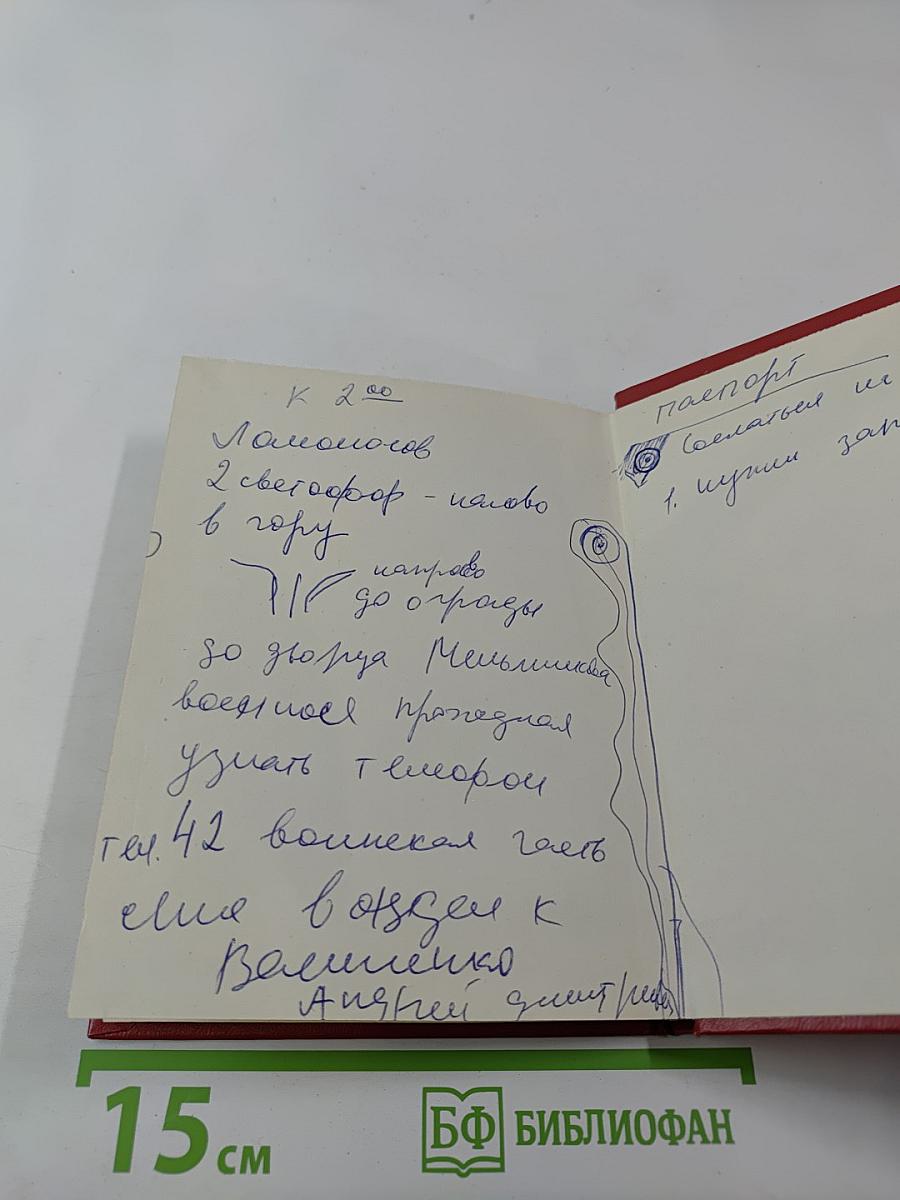 К 2 00
Ломоносов
2 светофор - налево
в гору
направо
до ограды
до дворца Меньшикова
военная проходная
узнать телефон
тел. 42 воинская часть
в отдел к
Андрей Дмитриевич
паспорт
1. нужны
15 см
БФ БИБЛИОФАН